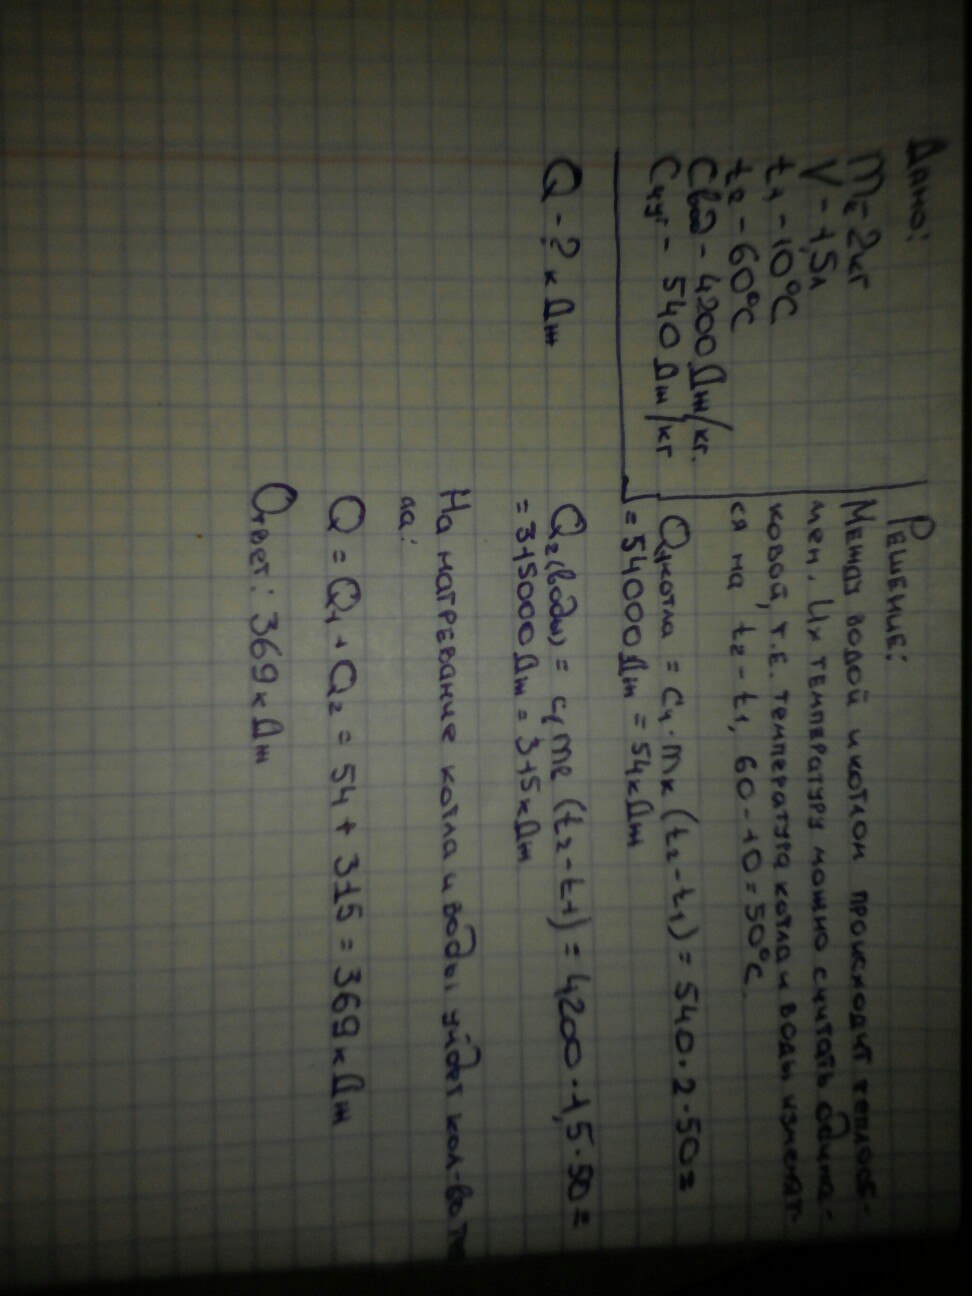 Дано:
mк - 2кг
V - 1,5л
t₁ - 10°C
t₂ - 60°C
Cвод - 4200 Дж/кг.
Cчуг - 540 Дж/кг
Q - ? кДж
Решение:
Между водой и котлом происходит теплооб-
мен. Их температуру можно считать одина-
ковой, т.е. температура котла и воды изменят-
ся на t₂ - t₁, 60 - 10 = 50°C.
Q₁котла = C₁ · mк (t₂ - t₁) = 540 · 2 · 50 =
= 54000 Дж = 54 кДж
Q₂(воды) = c₁ m₂ (t₂ - t₁) = 4200 · 1,5 · 50 =
= 315000 Дж = 315 кДж
На нагревание котла и воды уйдет кол-во
ла:
Q = Q₁ + Q₂ = 54 + 315 = 369 кДж
Ответ: 369 кДж